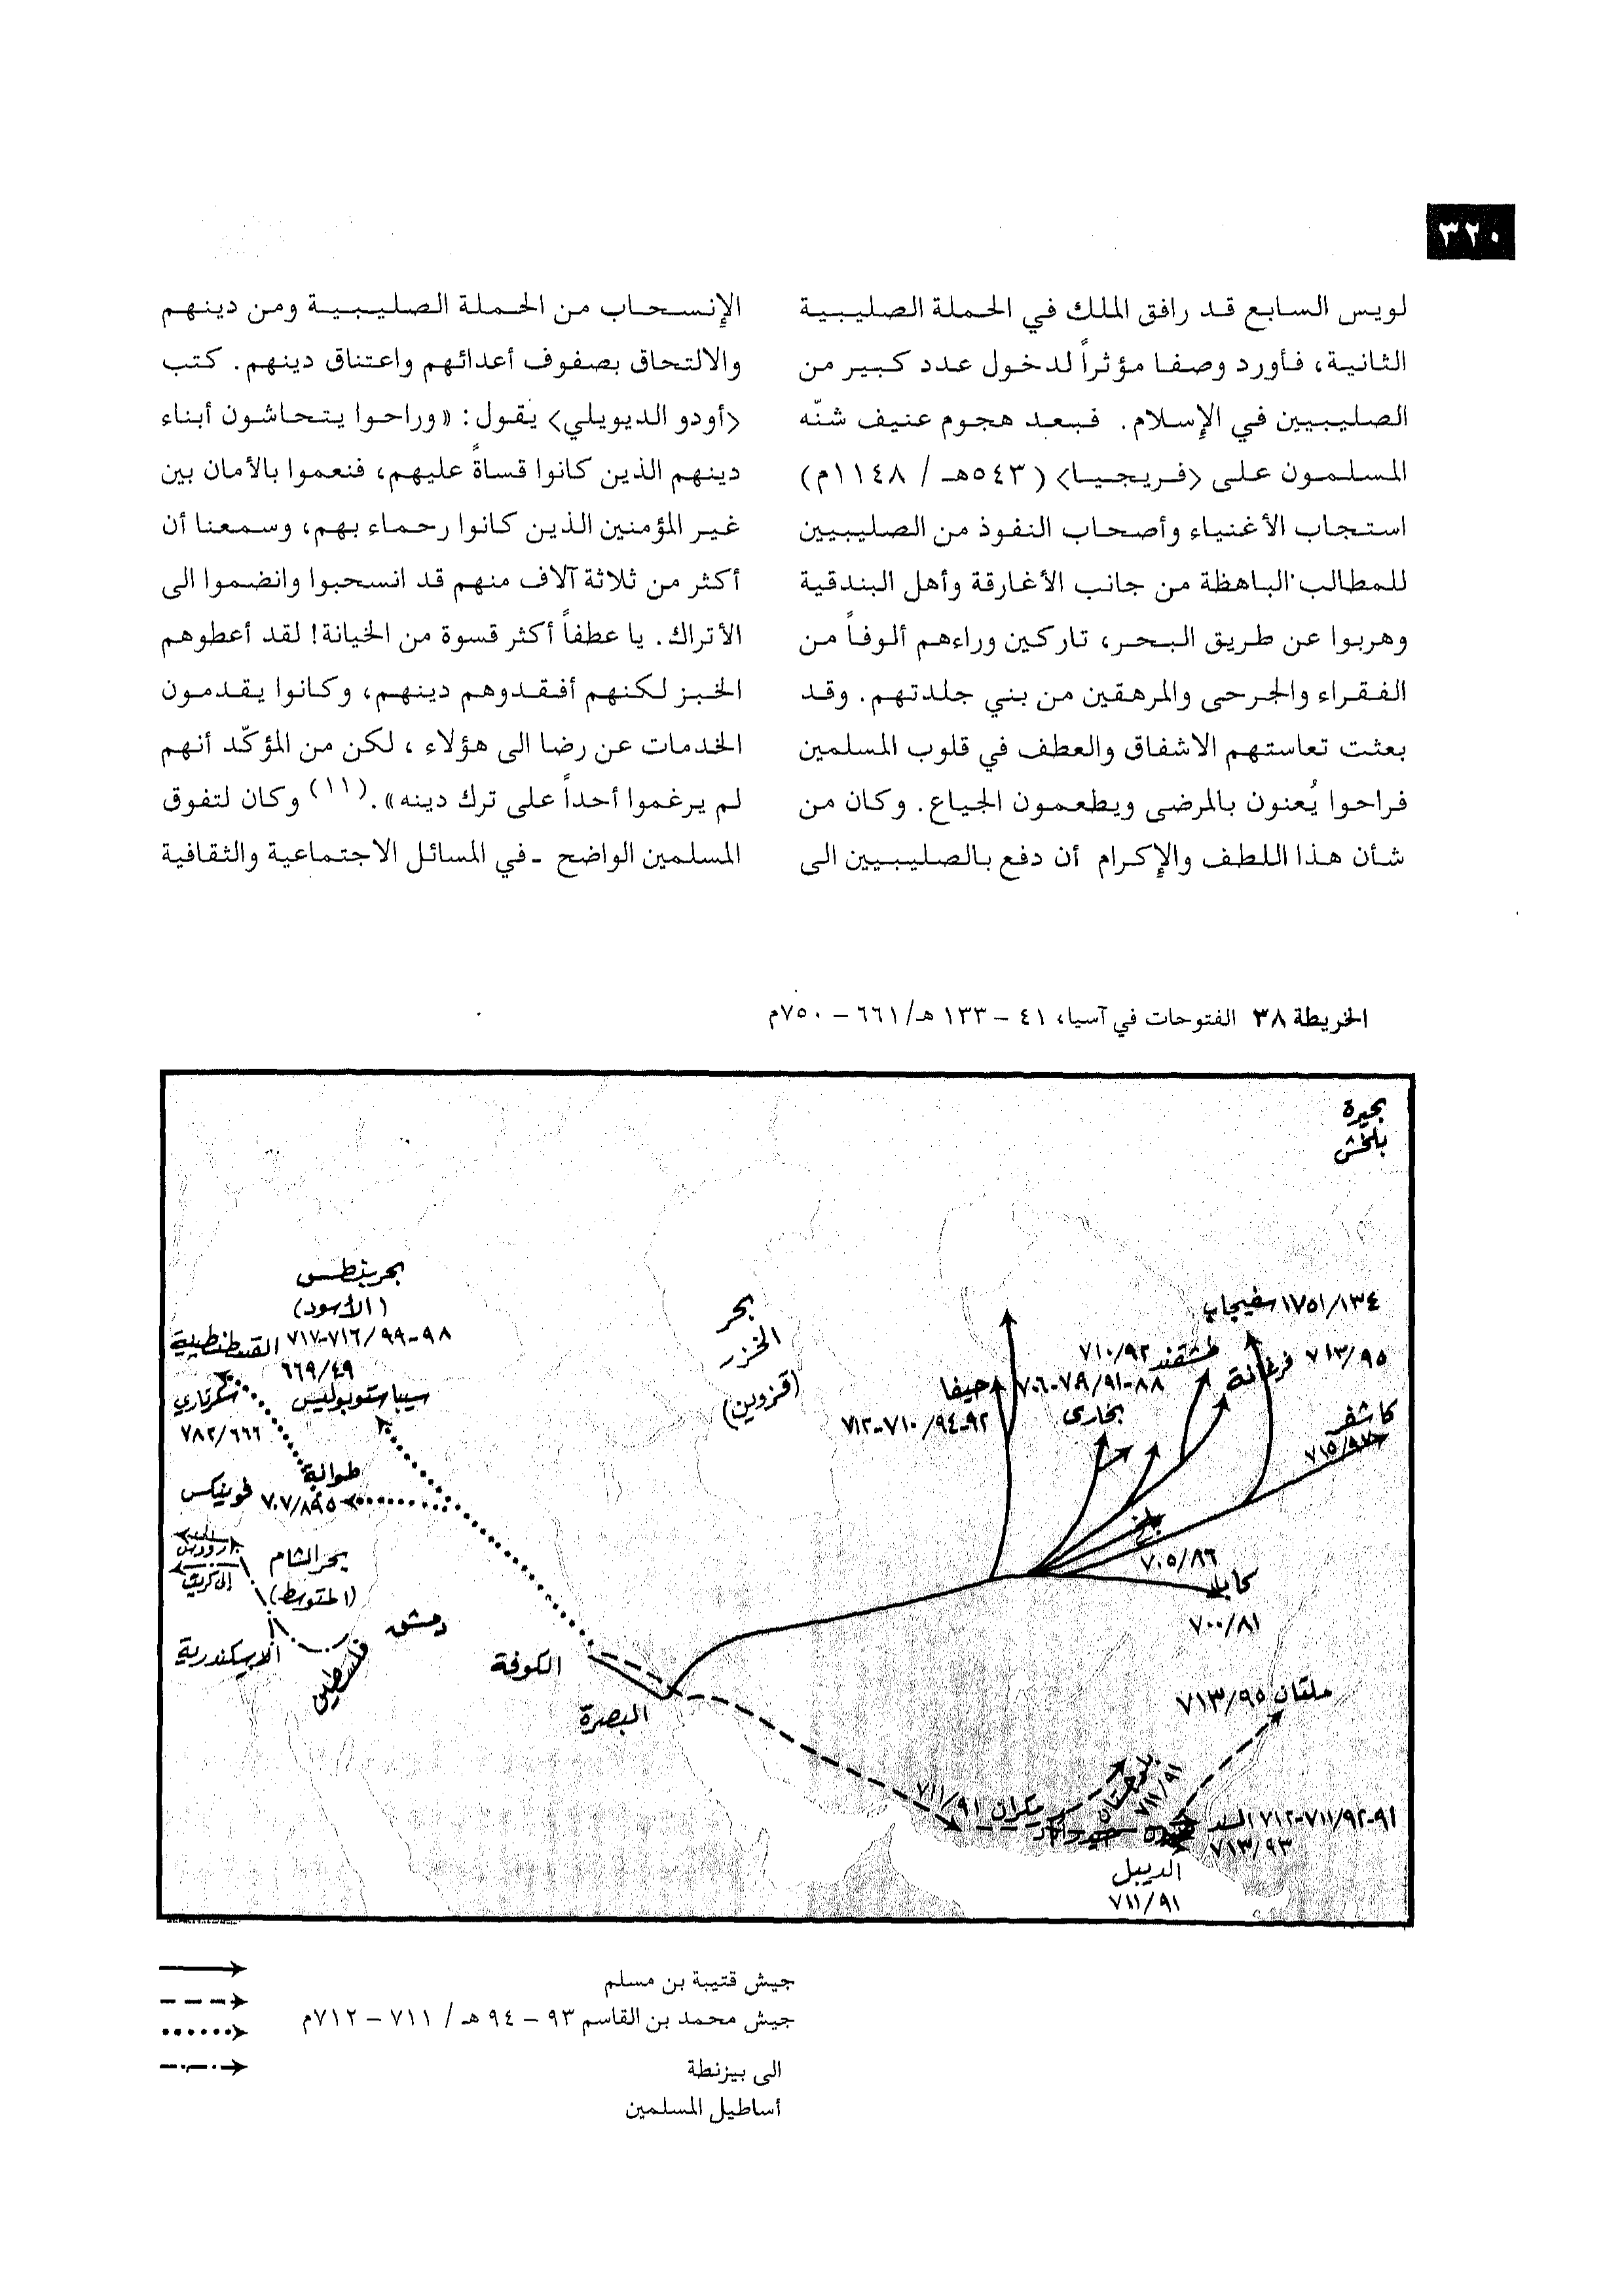 ٣٢٠
لويس السابع قد رافق الملك في الحملة الصليبية
الثانية، فأورد وصفا مؤثراً لدخول عدد كبير من
الصليبيين في الإسلام. فبعد هجوم عنيف شنّه
المسلمون على <فريجيا> (٥٤٣هـ / ١١٤٨م)
استجاب الأغنياء وأصحاب النفوذ من الصليبيين
للمطالب الباهظة من جانب الأغارقة وأهل البندقية
وهربوا عن طريق البحر، تاركين وراءهم ألوفاً من
الفقراء والجرحى والمرهقين من بني جلدتهم. وقد
بعثت تعاستهم الاشفاق والعطف في قلوب المسلمين
فراحوا يُعنون بالمرضى ويطعمون الجياع. وكان من
شأن هذا اللطف والإكرام أن دفع بالصليبيين الى
الإنسحاب من الحملة الصليبية ومن دينهم
والالتحاق بصفوف أعدائهم واعتناق دينهم. كتب
<أودو الديويلي> يقول: «وراحوا يتحاشون أبناء
دينهم الذين كانوا قساةً عليهم، فنعموا بالأمان بين
غير المؤمنين الذين كانوا رحماء بهم، وسمعنا أن
أكثر من ثلاثة آلاف منهم قد انسحبوا وانضموا الى
الأتراك. يا عطفاً أكثر قسوة من الخيانة! لقد أعطوهم
الخبز لكنهم أفقدوهم دينهم، وكانوا يقدمون
الخدمات عن رضا الى هؤلاء ، لكن من المؤكّد أنهم
لم يرغموا أحداً على ترك دينه».(١١) وكان لتفوق
المسلمين الواضح -في المسائل الاجتماعية والثقافية
الخريطة ٣٨ الفتوحات في آسيا، ٤١ – ١٣٣ هـ/٦٦١ – ٧٥٠م
بحيرة
بلخش
بحر بنطس
(الأسود)
٩٨-٩٩/٧١٦-٧١٧ القسطنطينية
٤٩/٦٦٩
سيباستوبوليس
سكرتاري
٧٨٢/٦٦٦
طوانة
فونيكس
بحر الشام
(المتوسط)
الى كريت
دمشق
فلسطين
الاسكندرية
الكوفة
البصرة
بحر
الخزر
(قزوين)
١٣٤/٧٥١ سفيجاب
طشقند ٩٢/٧١٠
٩٥/٧١٣ فرغانة
٨٨-٩١/٧٠٦-٧٩
بخارى
حيفا
٩٢-٩٤/٧١٠-٧١٢
كاشغر
٩٧/٧١٥
بلخ
٨٦/٧٠٥
كابل
٨١/٧٠٠
ملتان ٩٥/٧١٣
بلوجستان
٩١/٧١١
مكران ٩١/٧١١
٩١-٩٢/٧١١-٧١٢ السند
٩٣/٧١٣
الديبل
٩١/٧١١
جيش قتيبة بن مسلم
جيش محمد بن القاسم ٩٣ – ٩٤ هـ / ٧١١ – ٧١٢م
الى بيزنطة
أساطيل المسلمين